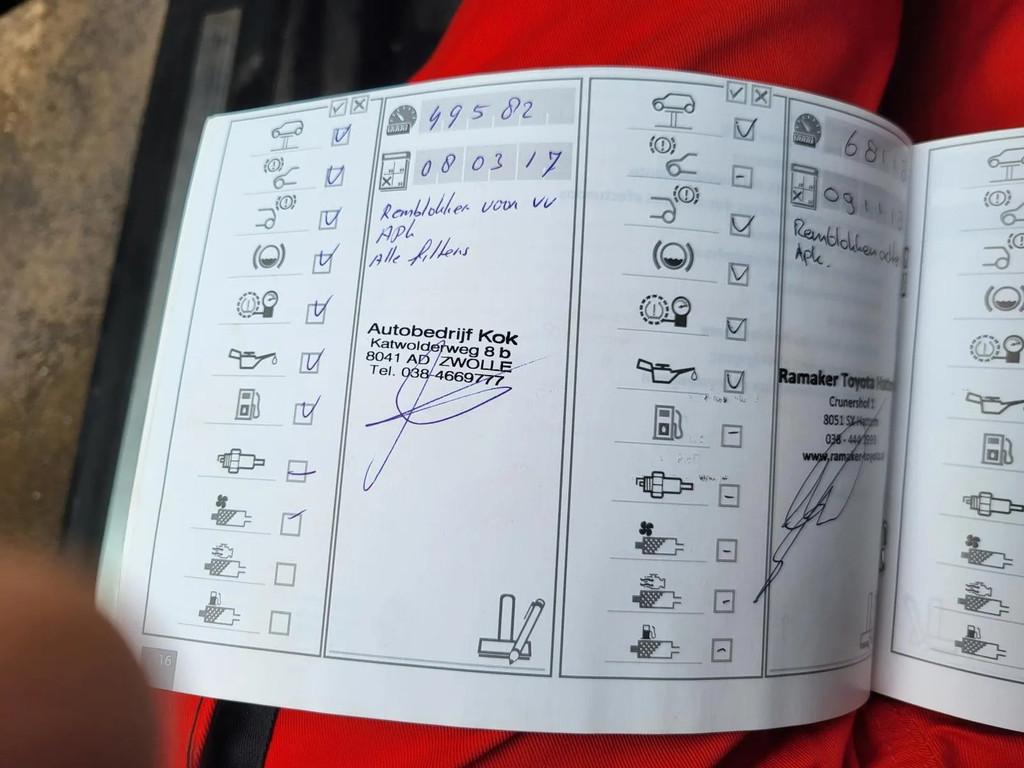 49582
08 03 17
Remblokken voor vv
APk
Alle filters
Autobedrijf Kok
Katwolderweg 8 b
8041 AD ZWOLLE
Tel. 038-4669777
16
Remblokken
Apk.
Ramaker Toyota
Crunershof 1
8051 SX
038 - 444
www.ramaker-toyota